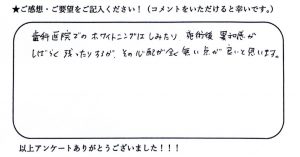 ★ご感想・ご要望をご記入ください！（コメントをいただけると幸いです。）
歯科医院でのホワイトニングはしみたり、施術後違和感が
しばらく残ったりするが、その心配が全く無い点が良いと思います。
以上アンケートありがとうございました！！！